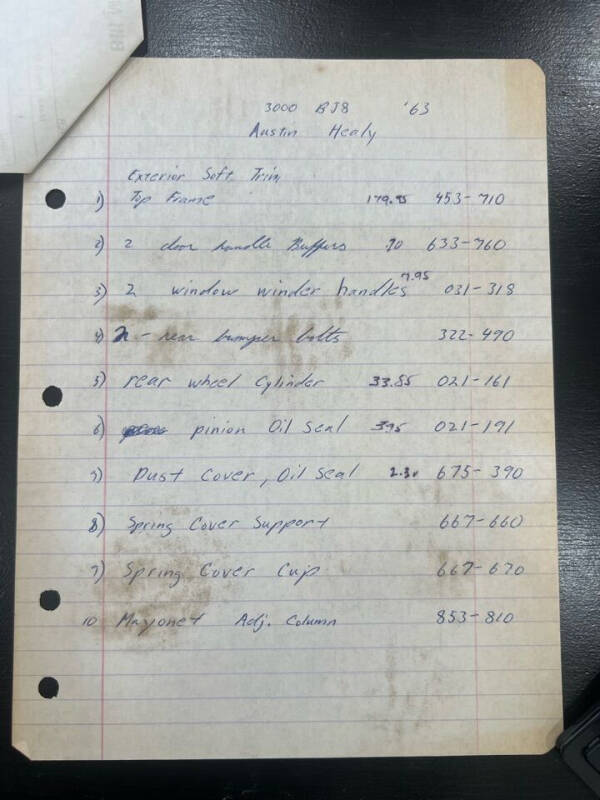 3000 BJ8 '63
Austin Healy
Exterior Soft Trim
1) Top Frame 179.95 453-710
2) 2 door handle Buffers 70 633-760
3) 2 window winder handles 7.95 031-318
4) rear bumper bolts 322-490
5) rear wheel Cylinder 33.85 021-161
6) pinion Oil Seal 3.95 021-191
7) Dust Cover, Oil Seal 675-390
8) Spring Cover Support 667-660
9) Spring Cover Cup 667-670
10 Adj. Column 853-810